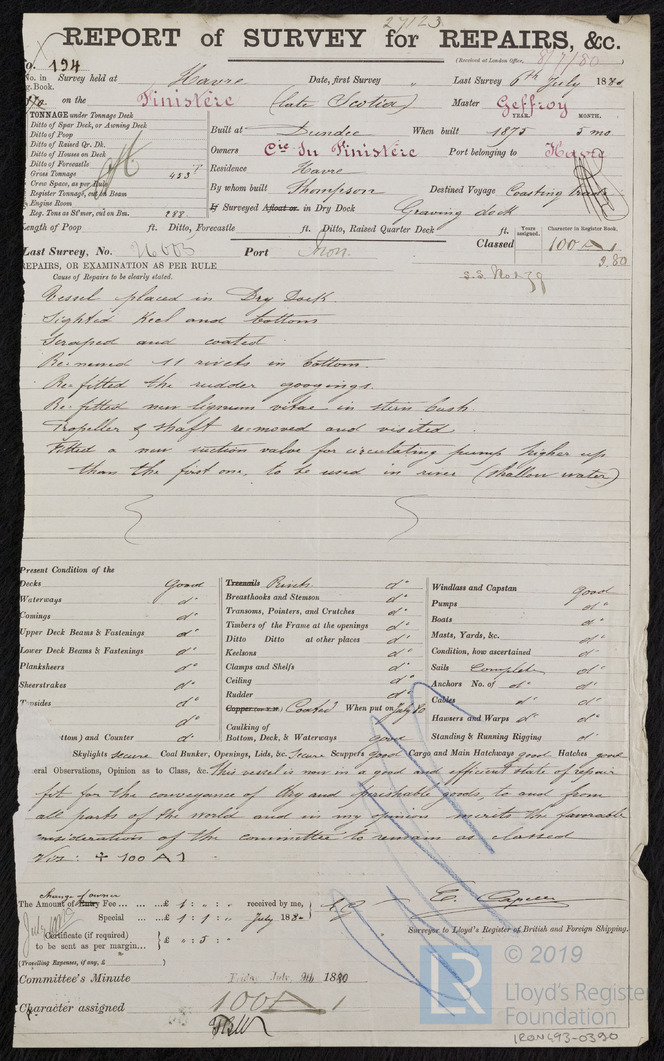 27123
REPORT of SURVEY for REPAIRS, &c.
(Received at London Office, 8/7/80
No. 194
No. in Survey held at Havre Date, first Survey „ Last Survey 6th July 1880
g. Book.
on the Finistère (late Scotia) Master Geffroy
TONNAGE under Tonnage Deck
Ditto of Spar Deck, or Awning Deck
Ditto of Poop
Ditto of Raised Qr. Dk.
Ditto of Houses on Deck
Ditto of Forecastle
Gross Tonnage 453
Crew Space, as per Rule
Register Tonnage, cut on Beam
Engine Room
Reg. Tons as St'mer, cut on Bm. 288
YEAR. MONTH.
Built at Dundee When built 1875 5 mo.
Owners Cie du Finistère Port belonging to Havre
Residence Havre
By whom built Thompson Destined Voyage Coasting trade
If Surveyed Afloat or in Dry Dock Graving dock
Length of Poop ft. Ditto, Forecastle ft. Ditto, Raised Quarter Deck ft.
Years assigned. Character in Register Book.
Classed 100 A 1
3.80
Last Survey, No. Port Iron.
REPAIRS, OR EXAMINATION AS PER RULE
Cause of Repairs to be clearly stated.
Vessel placed in Dry Dock
Sighted Keel and bottom
Scraped and coated
Re-newed 11 rivets in bottom.
Re-fitted the rudder googings.
Re-fitted new lignum vitae in stern bush.
Propeller & Shaft re-moved and visited
Fitted a new suction valve for circulating pump higher up
than the first one, to be used in river (shallow water)
Present Condition of the
Decks Good
Waterways do
Comings do
Upper Deck Beams & Fastenings do
Lower Deck Beams & Fastenings do
Planksheers do
Sheerstrakes do
Topsides do
ottom) and Counter do
Treenails Rivets do
Breasthooks and Stemson do
Transoms, Pointers, and Crutches do
Timbers of the Frame at the openings do
Ditto Ditto at other places do
Keelsons do
Clamps and Shelfs do
Ceiling do
Rudder do
Copper (or Y.M.) Coated When put on July 80
Caulking of
Bottom, Deck, & Waterways good
Windlass and Capstan good
Pumps do
Boats do
Masts, Yards, &c. do
Condition, how ascertained do
Sails Complete do
Anchors No. of do do
Cables do do
Hawsers and Warps do do
Standing & Running Rigging do
Skylights secure Coal Bunker, Openings, Lids, &c. Secure Scuppers good Cargo and Main Hatchways good Hatches good
eral Observations, Opinion as to Class, &c. This vessel is now in a good and efficient state of repair
fit for the conveyance of dry and perishable goods, to and from
all parts of the world and in my opinion merits the favorable
consideration of the committee to remain as classed
Viz: ✠ 100 A 1
change of owner
The Amount of Entry Fee ... ... ...£ 1 : „ : „ received by me,
Special ... ...£ 1 : 1 : „ July 1880
Certificate (if required)
to be sent as per margin... £ „ : 5 : „
(Travelling Expenses, if any, £ )
E. Capelle
Surveyor to Lloyd's Register of British and Foreign Shipping.
Committee's Minute Friday July 9th 1880
Character assigned 100 A 1
© 2019
LR
Lloyd's Register
Foundation
IRON493-0390